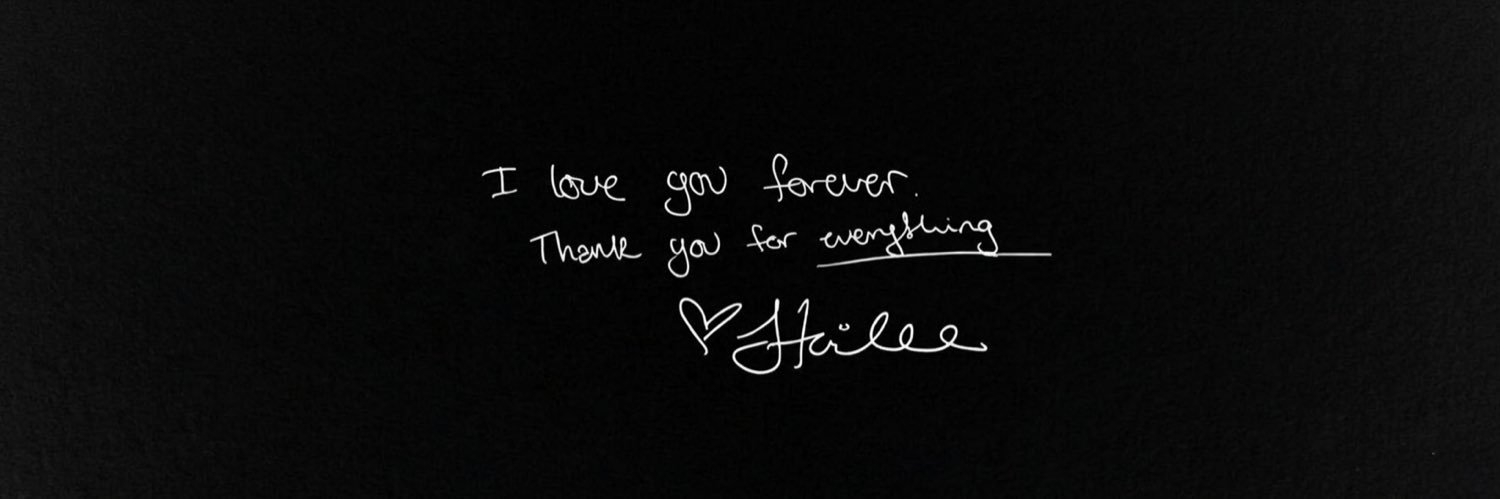 I love you forever.
Thank you for everything
♡ Hailee